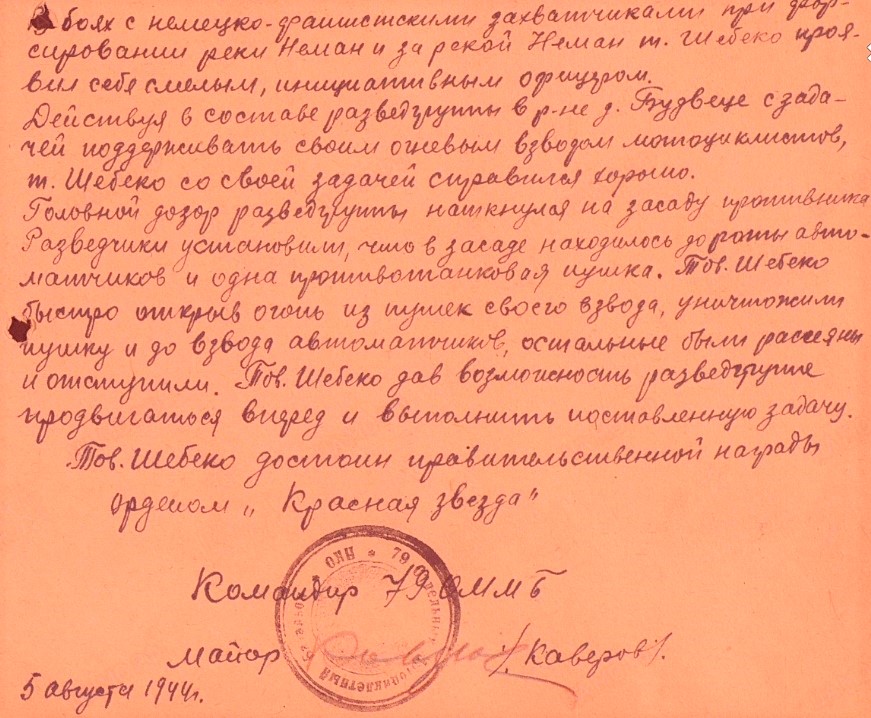 В боях с немецко-фашистскими захватчиками при фор-
сировании реки Неман и за рекой Неман т. Шебеко проя-
вил себя смелым, инициативным офицером.
Действуя в составе разведгруппы в р-не д. Будвеце с зада-
чей поддерживать своим огневым взводом мотоциклистов,
т. Шебеко со своей задачей справился хорошо.
Головной дозор разведгруппы наткнулся на засаду противника
Разведчики установили, что в засаде находилось до роты авто-
матчиков и одна противотанковая пушка. Тов. Шебеко
быстро открыв огонь из пушек своего взвода, уничтожили
пушку и до взвода автоматчиков, остальные были рассеяны
и отступили. Тов. Шебеко дав возможность разведгруппе
продвигаться вперед и выполнить поставленную задачу.
Тов. Шебеко достоин правительственной награды
орденом „Красная звезда"
Командир 79 ОММБ
НКО * 79
Майор /Каверов/.
5 августа 1944г.